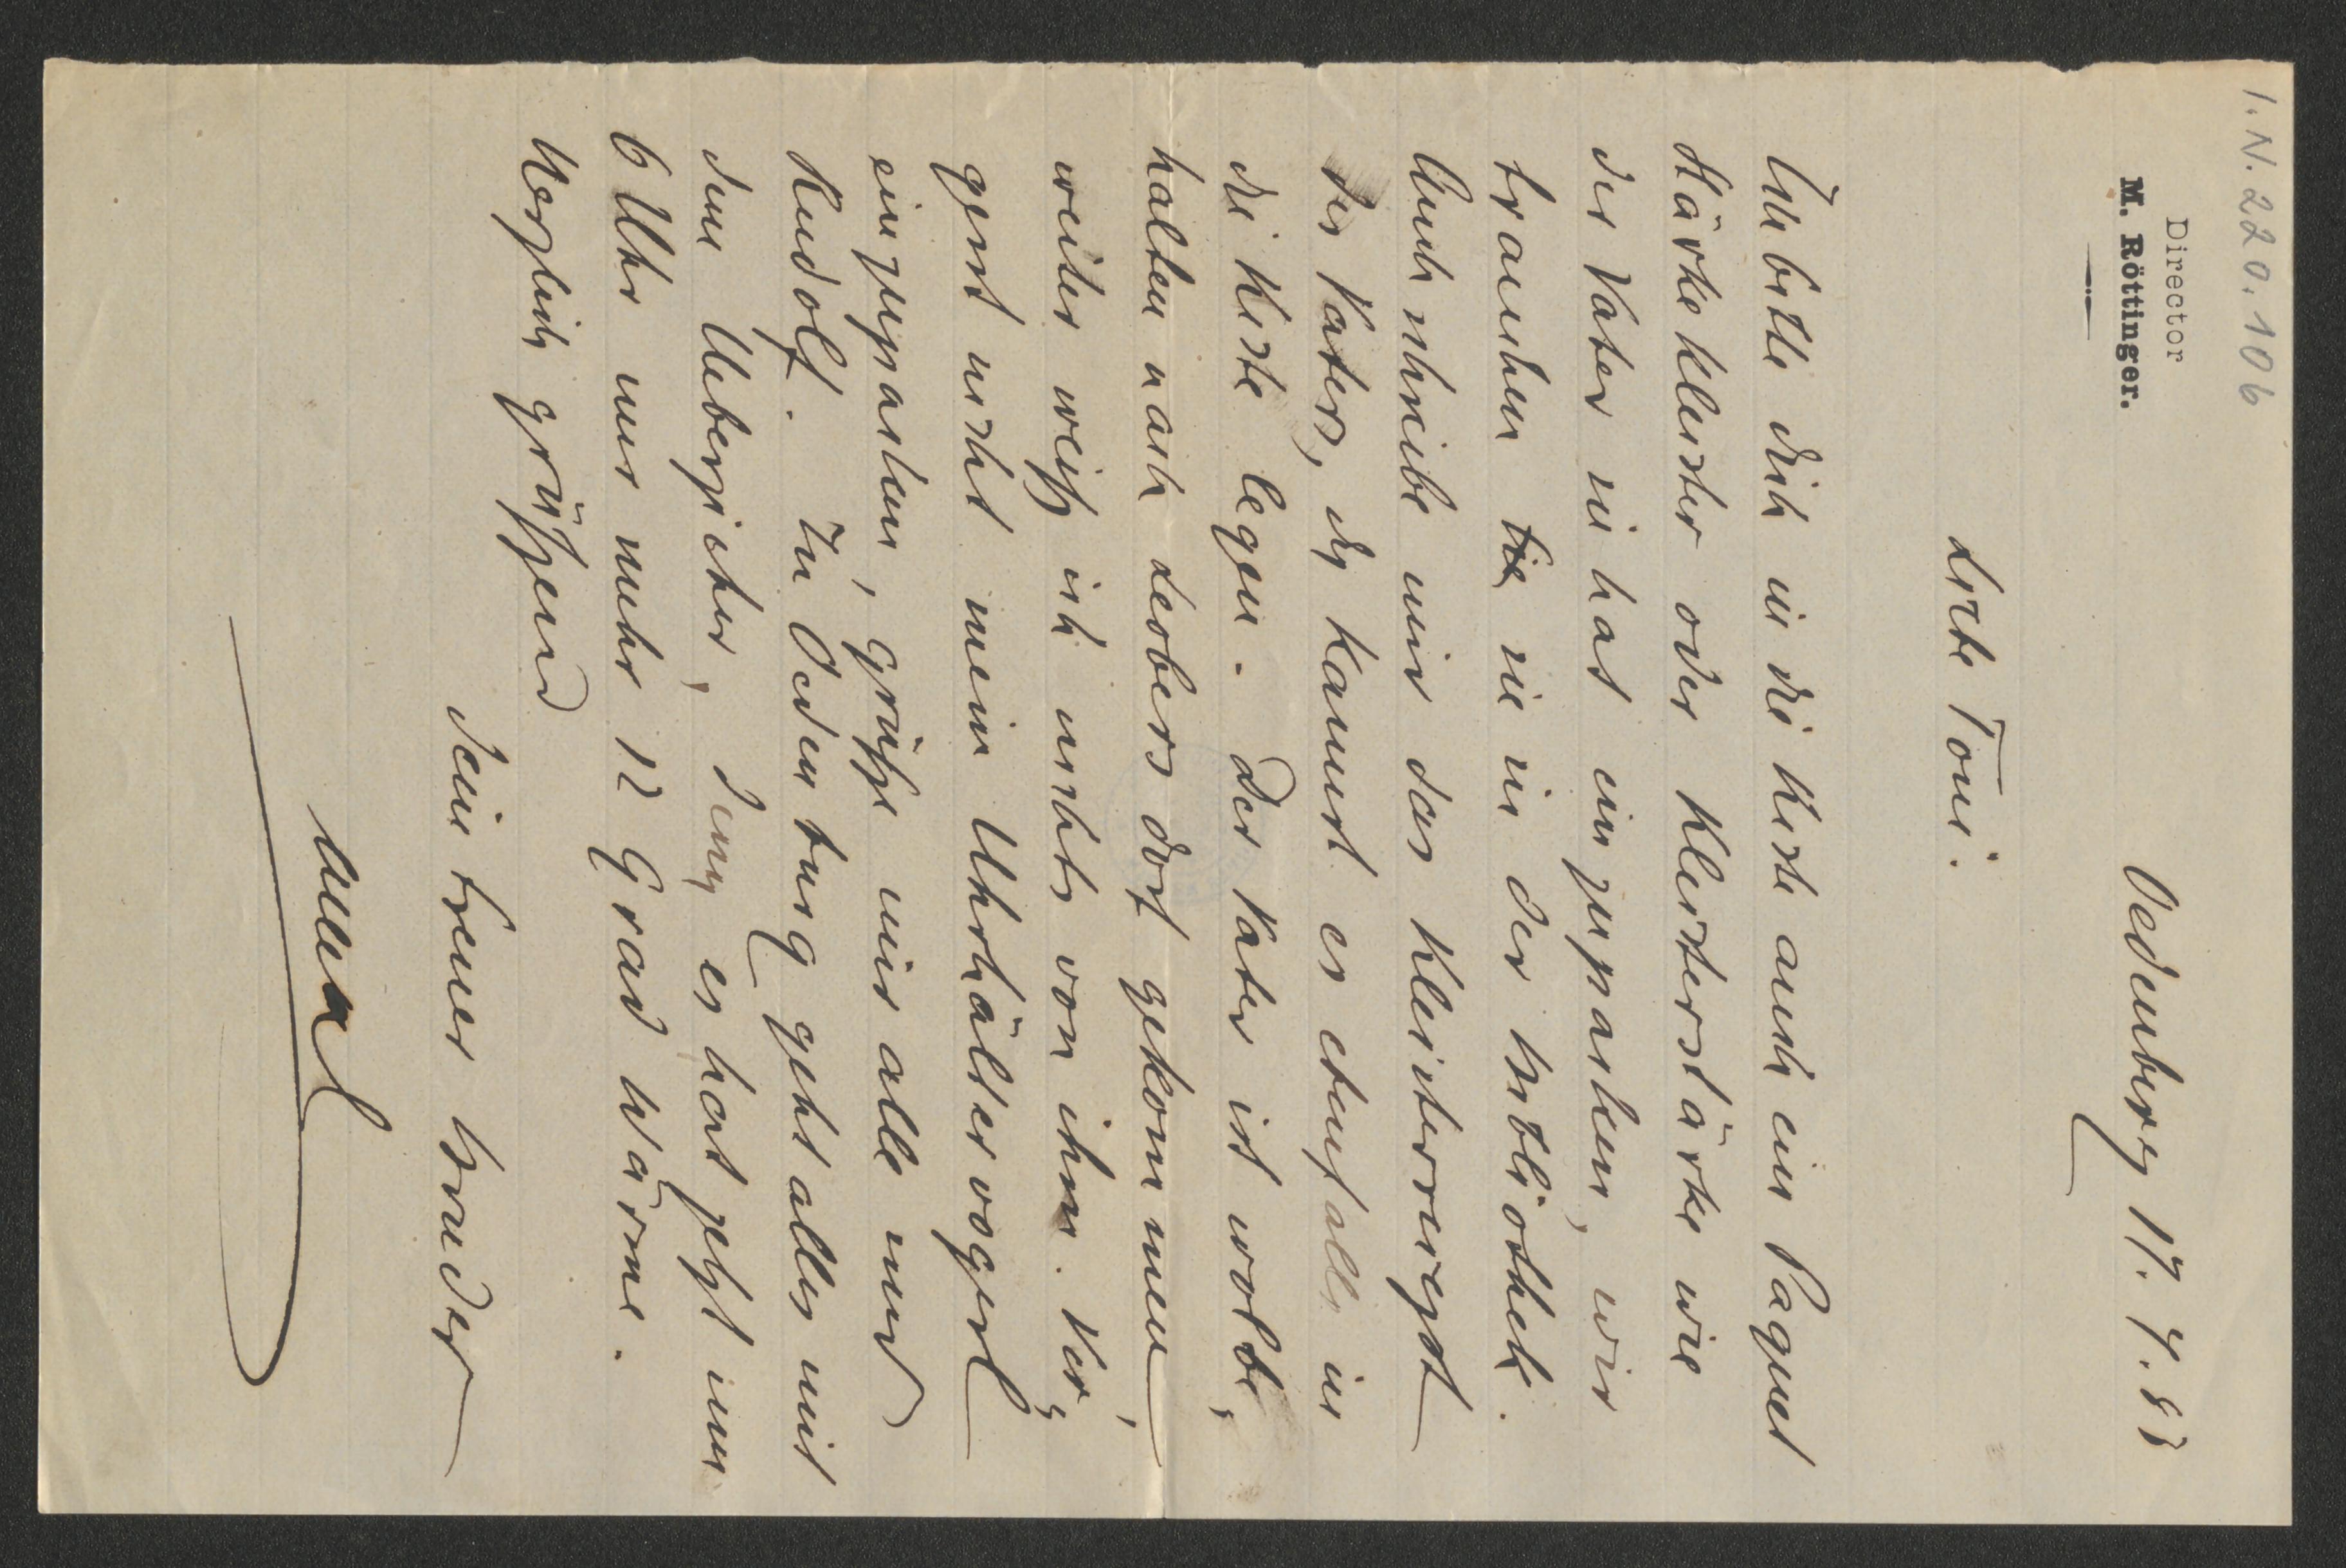 I.N. 220.106
Director
M. Röttinger.
Oedenburg 17.7.83
Liebe Toni.
Ich bitte dich in die Kiste auch ein Paquet
Stärkekleister oder Kleisterstärke wie
der Vater sie hat einzupacken, wir
brauchen sie in der Bibliothek.
Auch schreibe mir das Kleisterrecept
des Vaters, du kannst es ebenfalls in
die Kiste legen. Der Vater ist wolbe-
halten nach Leobersdorf gekommen,
weiter weiß ich nichts von ihm. Ver-
gesst nicht mein Uhrhälservogerl
einzupacken, grüße mir alle und
Rudolf. In Oedenburg geht alles mit
dem Ueberzieher, denn es hat jetzt um
6 Uhr nur mehr 12 Grad Wärme.
Herzlich grüßend
dein treuer Bruder